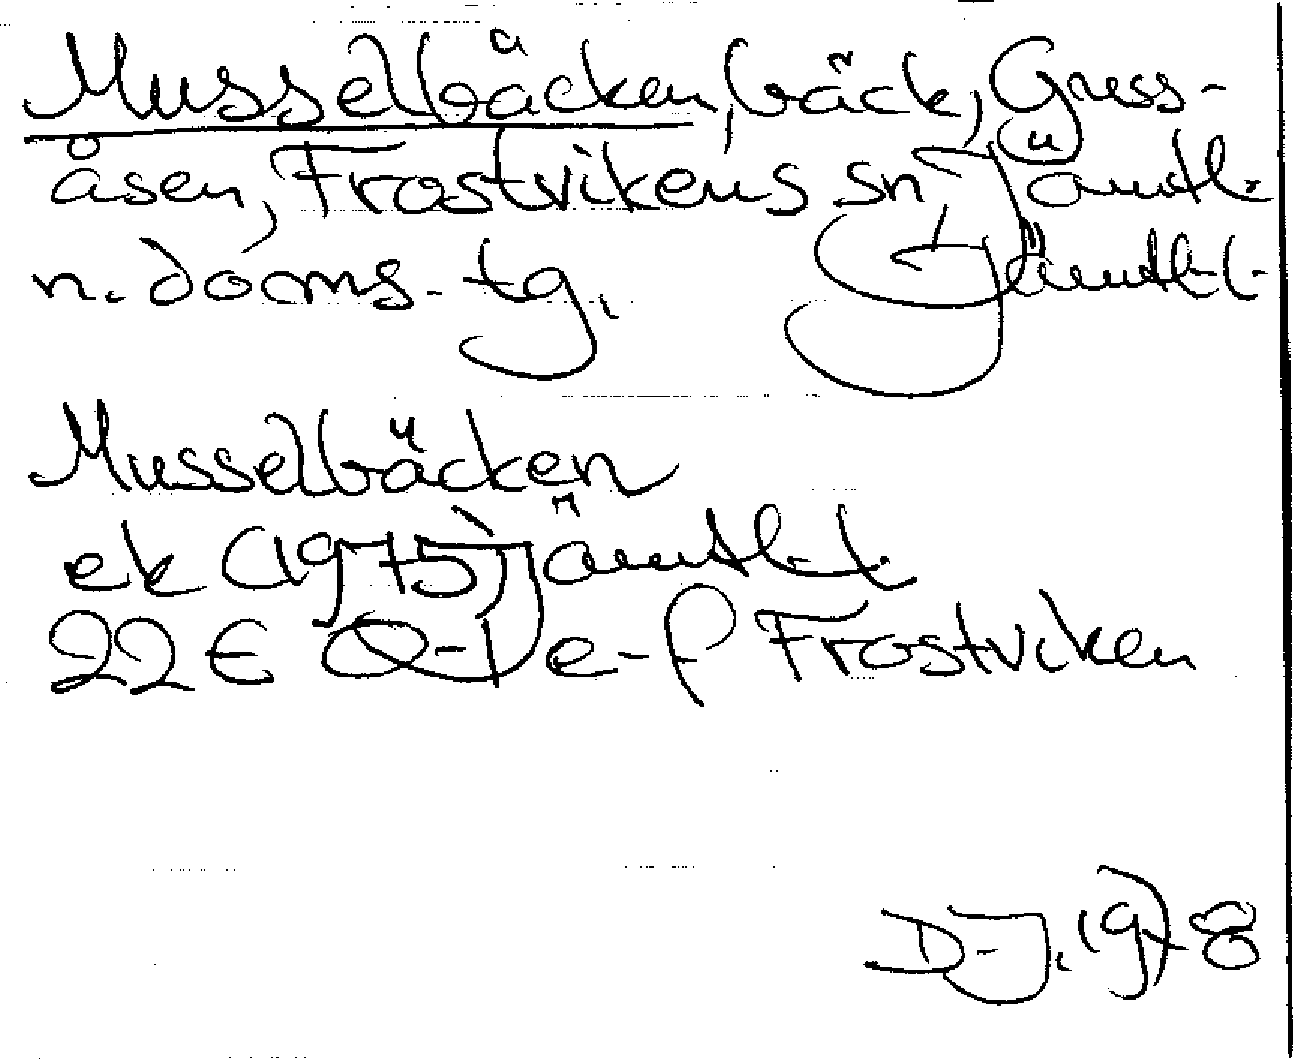 Musselbäcken, bäck, Guss-
åsen, Frostvikens sn Jämtl.
n. dooms. tg. Jämtl. l.
Musselbäcken
ek (1975) Jämtl. l.
22 E 0-1 e-f Frostviken
D-J. 1978